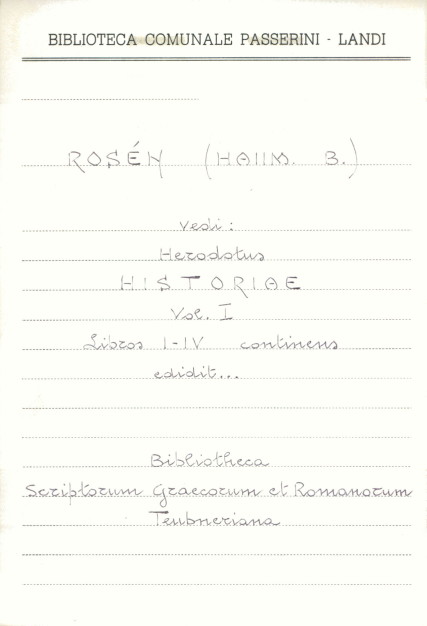 BIBLIOTECA COMUNALE PASSERINI - LANDI
ROSÉN (HAIIM. B.)
Vedi:
Herodotus
HISTORIAE
Vol. I
Libros I-IV continens
edidit...
Bibliotheca
Scriptorum Graecorum et Romanorum
Teubneriana